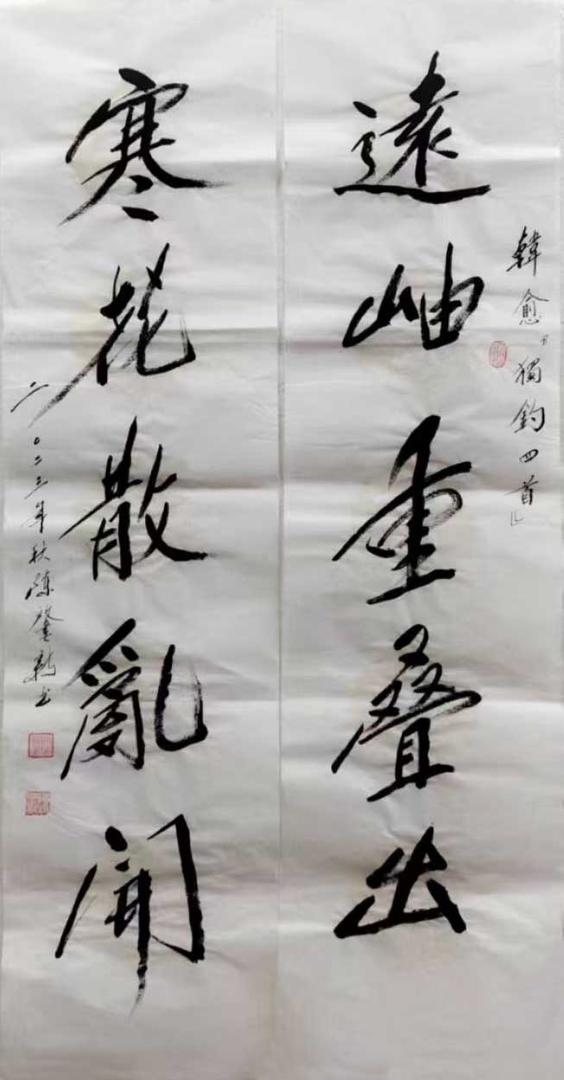 韓愈「獨釣四首」
遠岫重叠出
寒花散亂開
二〇二三年秋陳书